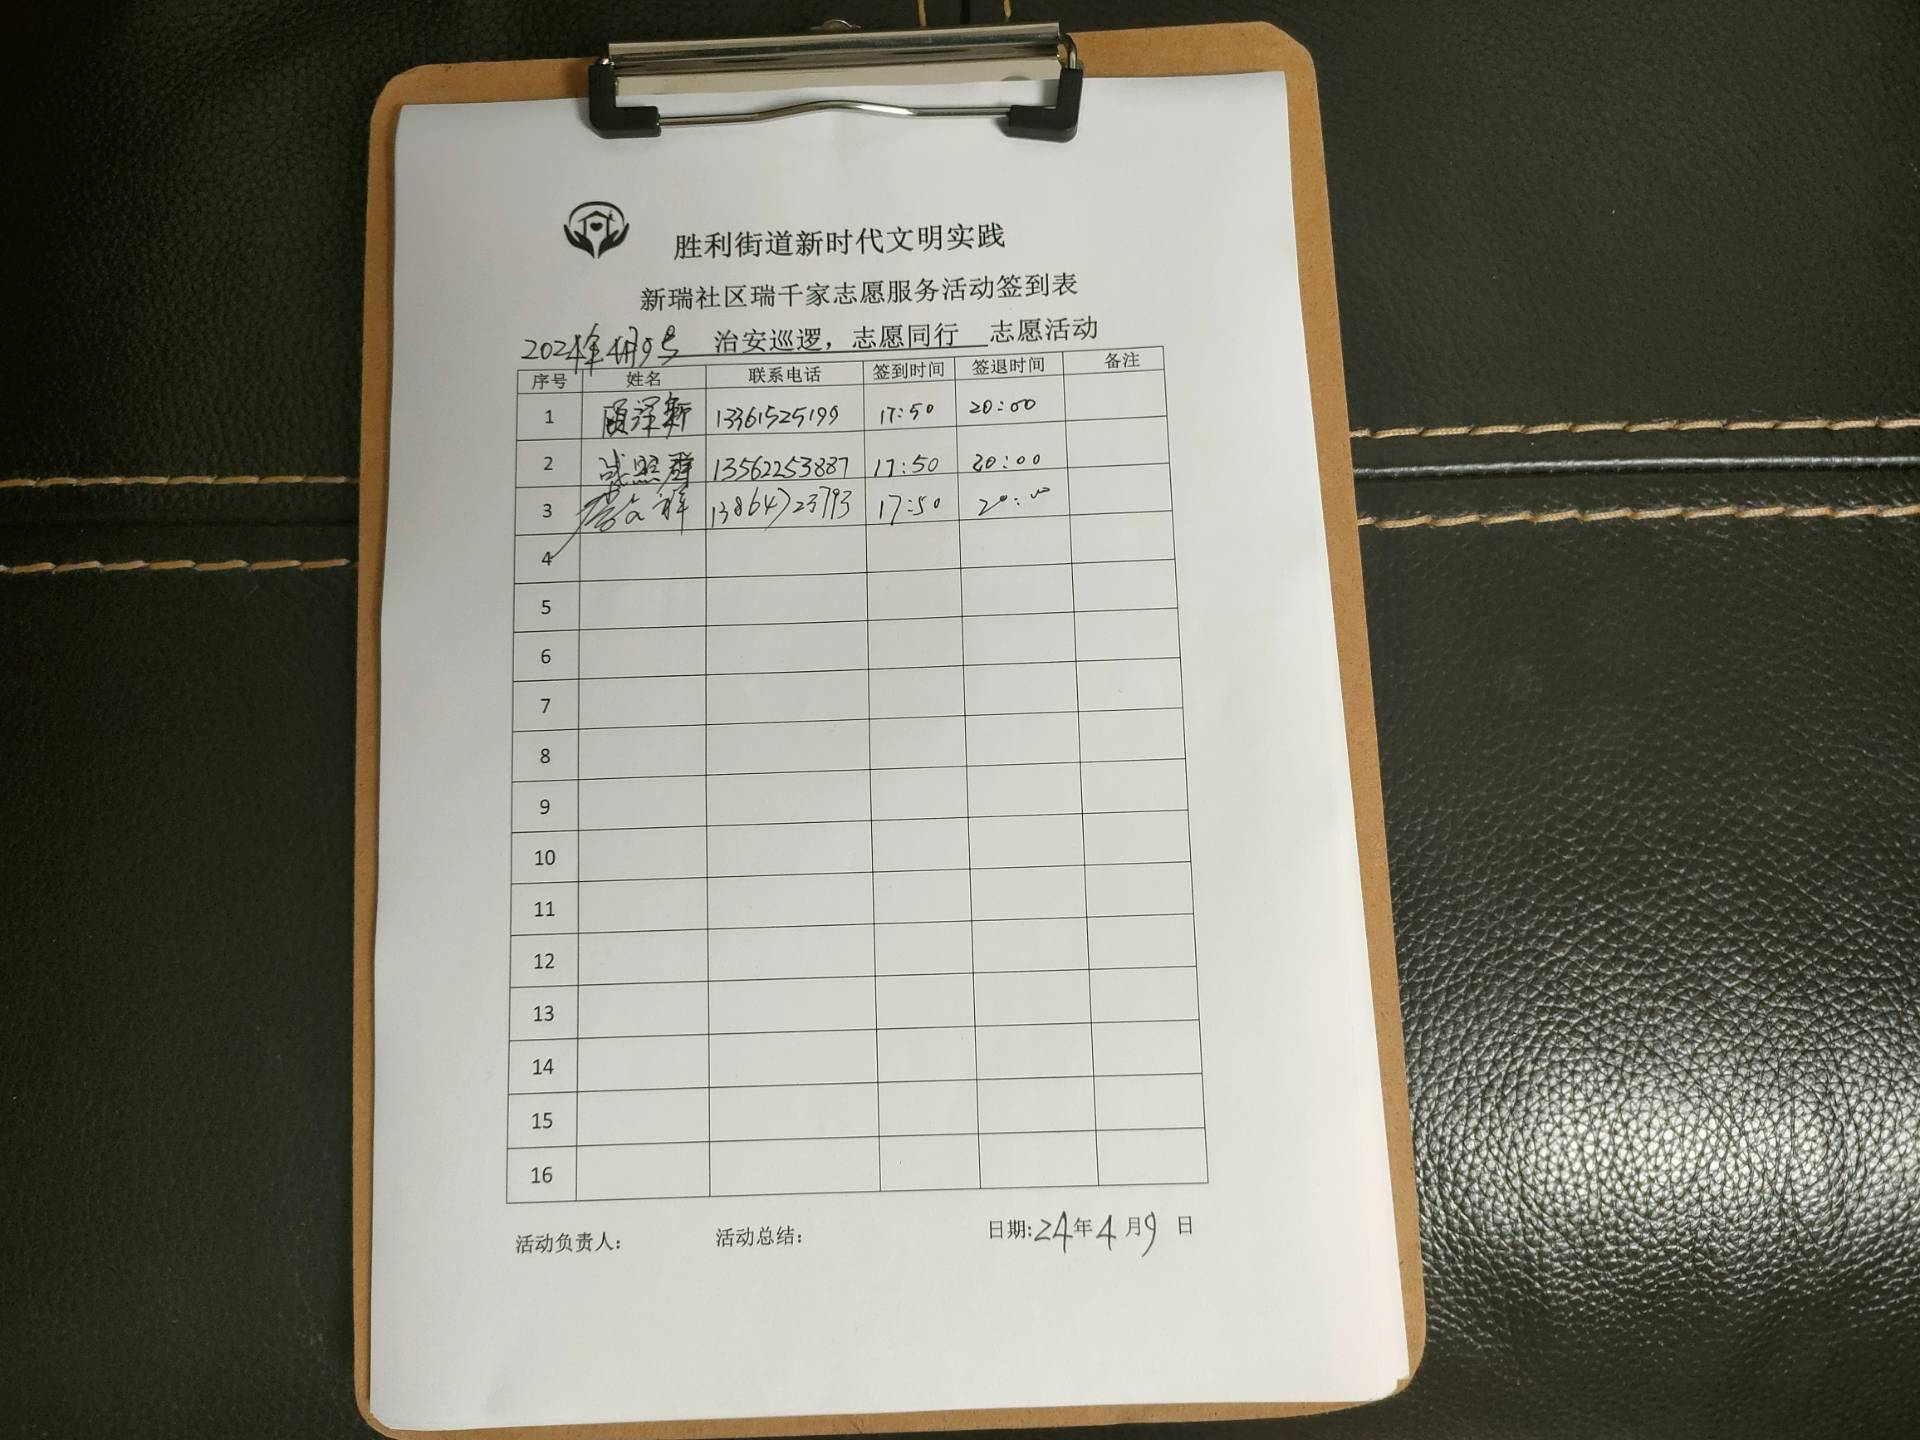 胜利街道新时代文明实践
新瑞社区瑞千家志愿服务活动签到表
2024年4月9号 治安巡逻，志愿同行 志愿活动
序号 姓名 联系电话 签到时间 签退时间 备注
1 顾泽新 13361525199 17:50 20:00
2 战照群 13562253887 17:50 20:00
3 文祥 13864723793 17:50 20:00
4
5
6
7
8
9
10
11
12
13
14
15
16
活动负责人： 活动总结： 日期:24年4月9日